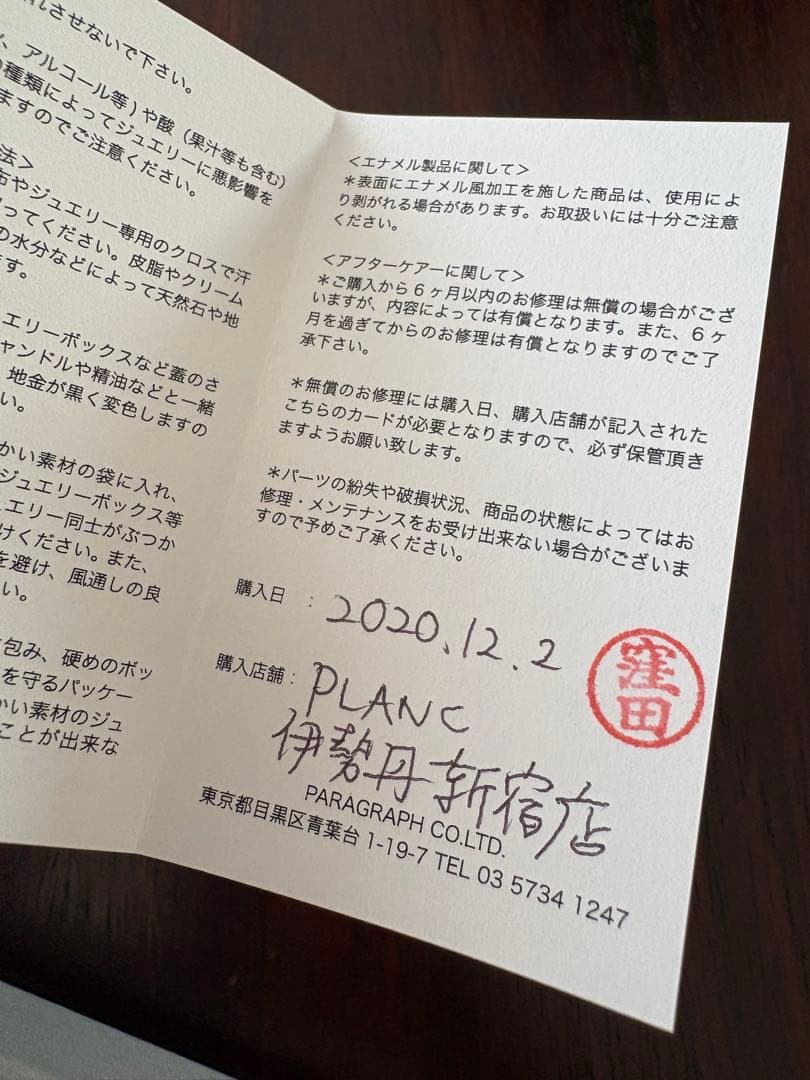 れさせないで下さい。
、アルコール等)や酸(果汁等も含む)
種類によってジュエリーに悪影響を
ますのでご注意ください。
法>
布やジュエリー専用のクロスで汗
ってください。皮脂やクリーム
の水分などによって天然石や地
す。
エリーボックスなど蓋のさ
ャンドルや精油などと一緒
地金が黒く変色しますの
い。
かい素材の袋に入れ、
ジュエリーボックス等
ュエリー同士がぶつか
けください。また、
を避け、風通しの良
い。
包み、硬めのボッ
を守るパッケー
かい素材のジュ
ことが出来な
<エナメル製品に関して>
*表面にエナメル風加工を施した商品は、使用によ
り剥がれる場合があります。お取扱いには十分ご注意
ください。
<アフターケアーに関して>
*ご購入から6ヶ月以内のお修理は無償の場合がござ
いますが、内容によっては有償となります。また、6ヶ
月を過ぎてからのお修理は有償となりますのでご了
承下さい。
*無償のお修理には購入日、購入店舗が記入された
こちらのカードが必要となりますので、必ず保管頂き
ますようお願い致します。
*パーツの紛失や破損状況、商品の状態によってはお
修理・メンテナンスをお受け出来ない場合がございま
すので予めご了承ください。
購入日 : 2020.12.2
窪田
購入店舗: PLANC
伊勢丹新宿店
PARAGRAPH CO.LTD.
東京都目黒区青葉台 1-19-7 TEL 03 5734 1247